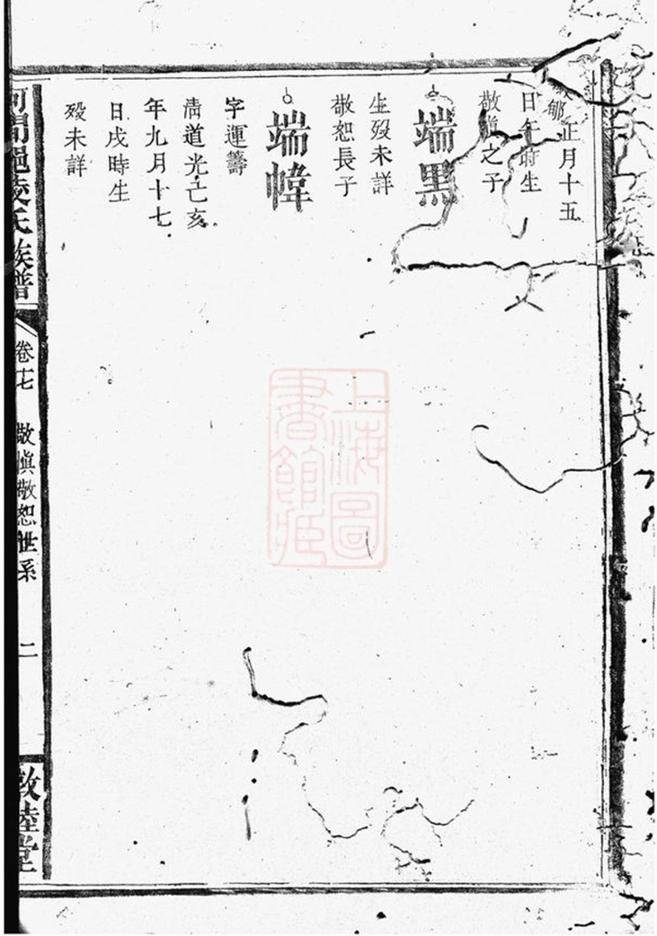 正月十五
日午時生
敬慎之子
端黑
生殁未詳
敬恕長子
端幃
字運籌
清道光己亥
年九月十七
日戌時生
殁未詳
河間凌氏族譜
卷十七
敬慎敬恕世系
二
敦睦堂
上海圖
書館藏